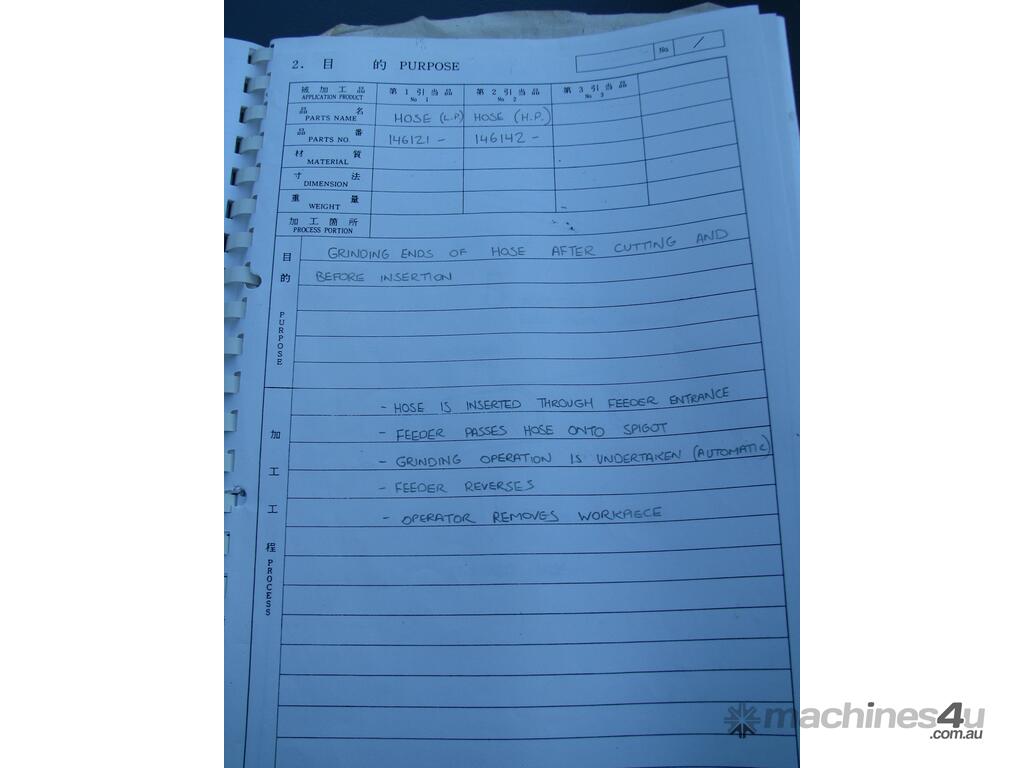 2. 目 的 PURPOSE
No /
被加工品 第1引当品 第2引当品 第3引当品
APPLICATION PRODUCT No 1 No 2 No 3
品 名
PARTS NAME HOSE (L.P) HOSE (H.P.)
品 番
PARTS NO. 146121 - 146142 -
材 質
MATERIAL
寸 法
DIMENSION
重 量
WEIGHT
加工箇所
PROCESS PORTION
目的 PURPOSE
GRINDING ENDS OF HOSE AFTER CUTTING AND
BEFORE INSERTION
加工工程 PROCESS
- HOSE IS INSERTED THROUGH FEEDER ENTRANCE
- FEEDER PASSES HOSE ONTO SPIGOT
- GRINDING OPERATION IS UNDERTAKEN (AUTOMATIC)
- FEEDER REVERSES
- OPERATOR REMOVES WORKPIECE
machines4u
.com.au